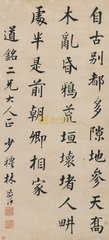 自古別都多隙地參天喬
木亂昏鴉荒垣壞堵人耕
處半是前朝卿相家
道銘二兄大人正 少穆林